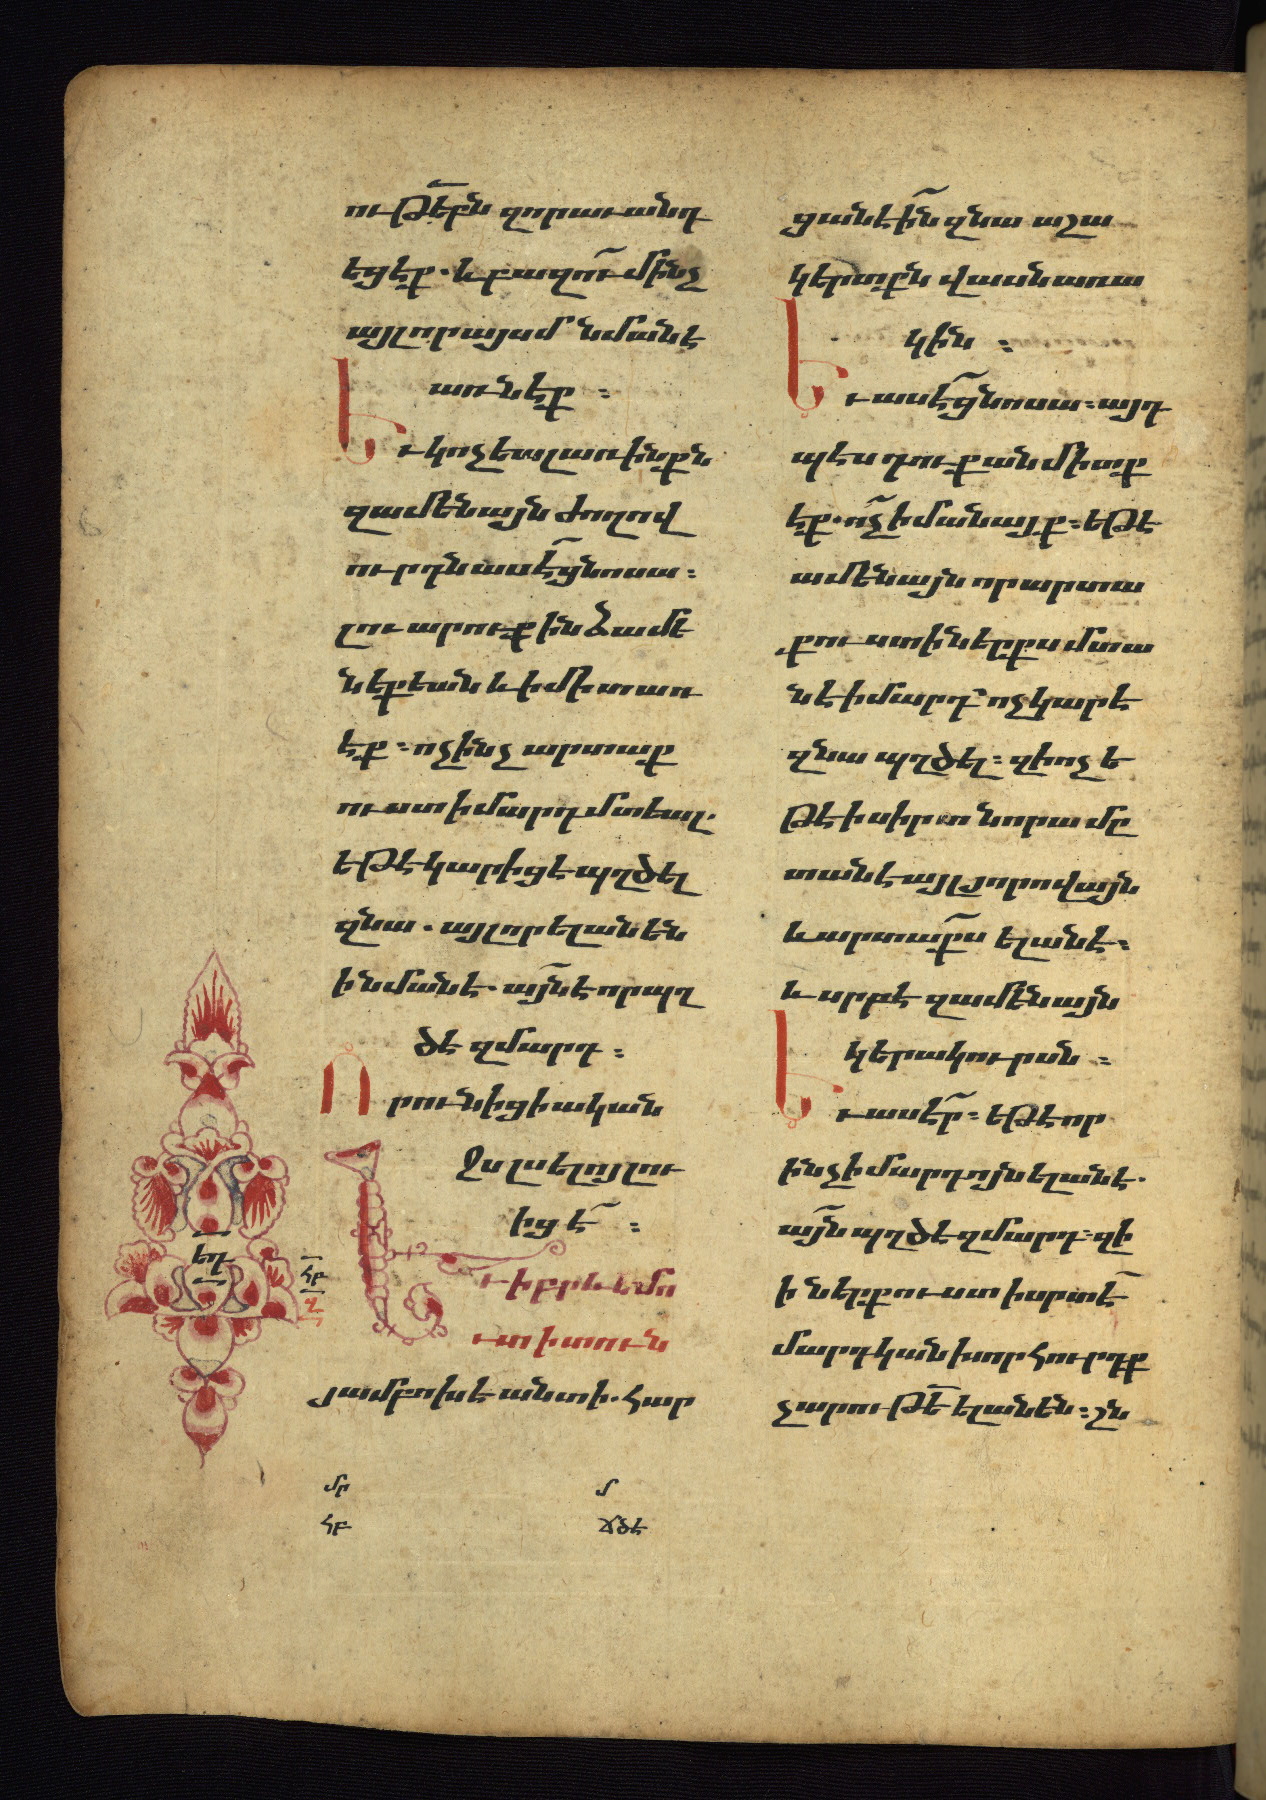 ութե̅բն զորաւանդ
եցէք․ և բազո̅ւմ ինչ
այլ որ այսմ նմանէ
առնէք ։
Եւ կոչեալ առ ինքն
զամենայն ժողով
ուրդն ասէ̅ ցնոսա ։
լուարուք ինձ ամե
նեքեան և ի միտ առ
էք ։ ոչ ինչ արտաք
ուստ ի մարդ մտեալ․
եթէ կարիցէ պղծել
զնա ․ այլ որ ելանեն
ի նմանէ․ ա̅յն է որ պղ
ծէ զմարդ ։
Որ ունիցի ական
ջս լսելոյ լու
իցէ̅ ։
Եւ իբրև եմո
ւտ ի տուն
յամբոխէ անտի․ հար
եղ
հբ
մը
հբ
ցանէի̅ն զնա աշա
կերտքն վասն առա
կին ։
Եւ ասէ̅ ցնոսա ։ այդ
պէս դուք անմիտք
էք․ ո̅չ իմանայք ։ եթէ
ամենայն որ արտա
քուստ ի ներքս մտա
նէ ի մարդ՝ ոչ կարէ
զնա պղծել ։ զի ոչ ե
թէ ի սիրտ նորա մը
տանէ այլ յորովայն
և արտա̅քս ելանէ ։
և սրբէ զամենայն
կերակուրսն ։
Եւ ասէ̅ր ։ եթէ որ
ինչ ի մարդոյն ելանէ․
ա̅յն պղծէ զմարդ ։ զի
ի ներքուստ ի սրտէ̅
մարդկան խորհուրդք
չարութե̅ ելանեն ։ շն
մ
ճծէ